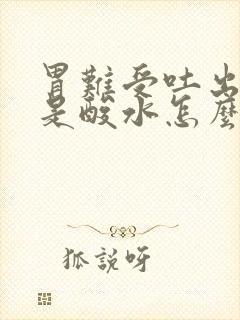 胃難受吐出
是酸水怎麼
狐説呀